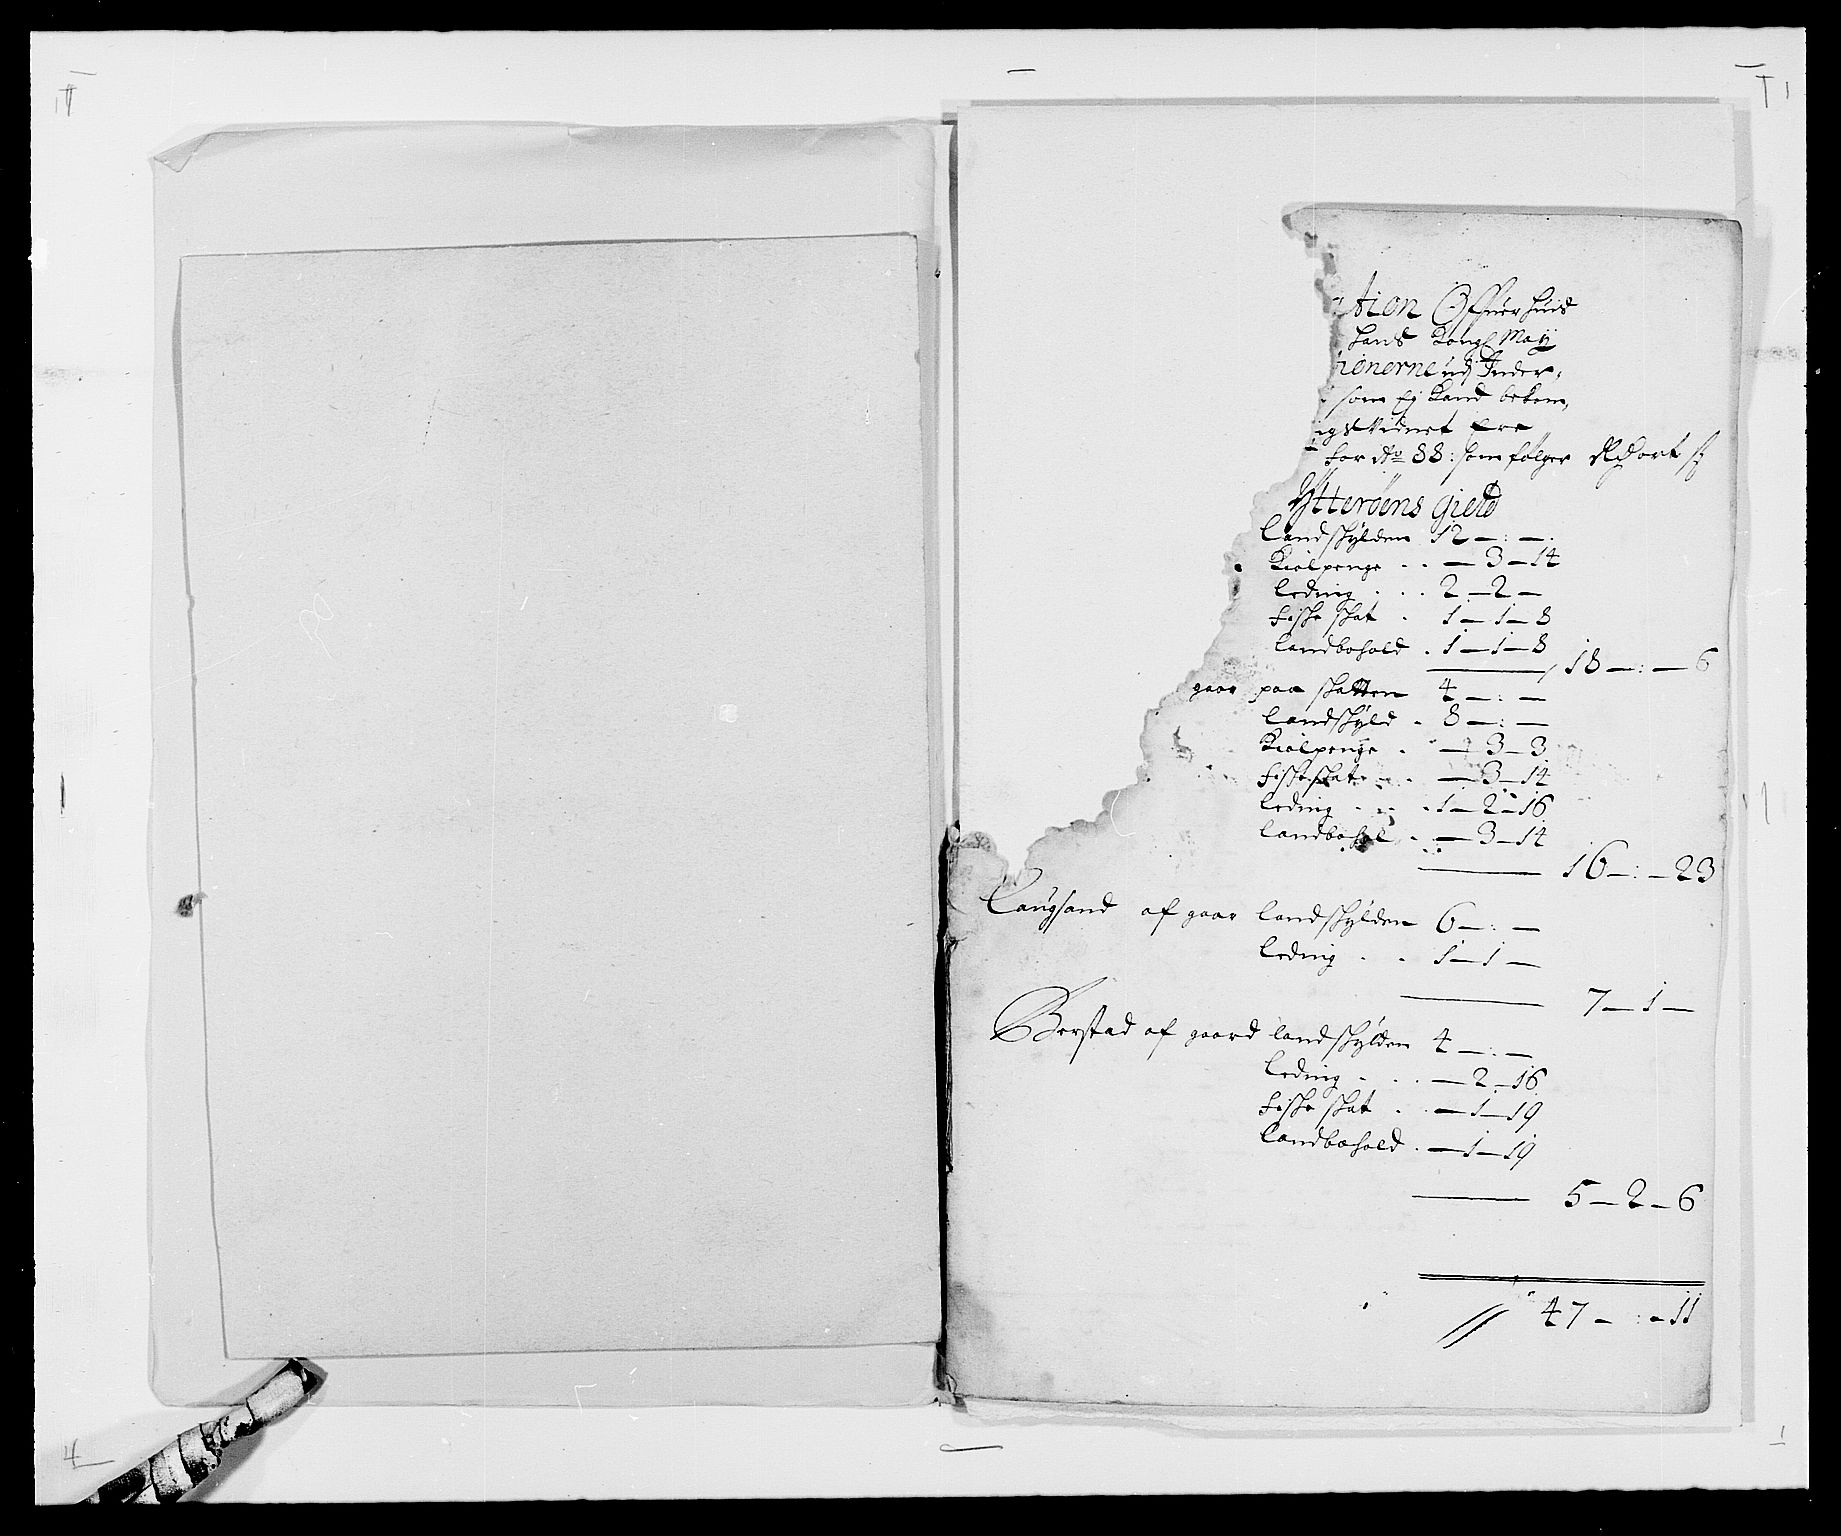 ation Offuer huis
hans Kongl May
ionerne udj Inder,
som Ej Kand bekom,
ngsvidnet ere
for Ao 88: som følger Rdort ß
Ytterøens gield
Landskylden 12 — : —
Kiolpenge . . — 3 — 14
Leding . . . 2 — 2 —
Fiske skat . 1 — 1 — 8
Landbohold . 1 — 1 — 8
18 — : — 6
gaar paa skatten 4 — : —
Landskyld . 8 — : —
Kiolpenge . — 3 — 3
Fiskeskat . . — 3 — 14
Leding . . . 1 — 2 — 16
Landbohol . — 3 — 14
16 — : — 23
Laugsand af gaar Landskylden 6 — : —
Leding . . 1 — 1 —
7 — 1 —
Berstad af gaard Landskylden 4 — : —
Leding . . . — 2 — 16
Fiske skat . . — 1 — 19
Landbohold . — 1 — 19
5 — 2 — 6
// 47 — : — 11